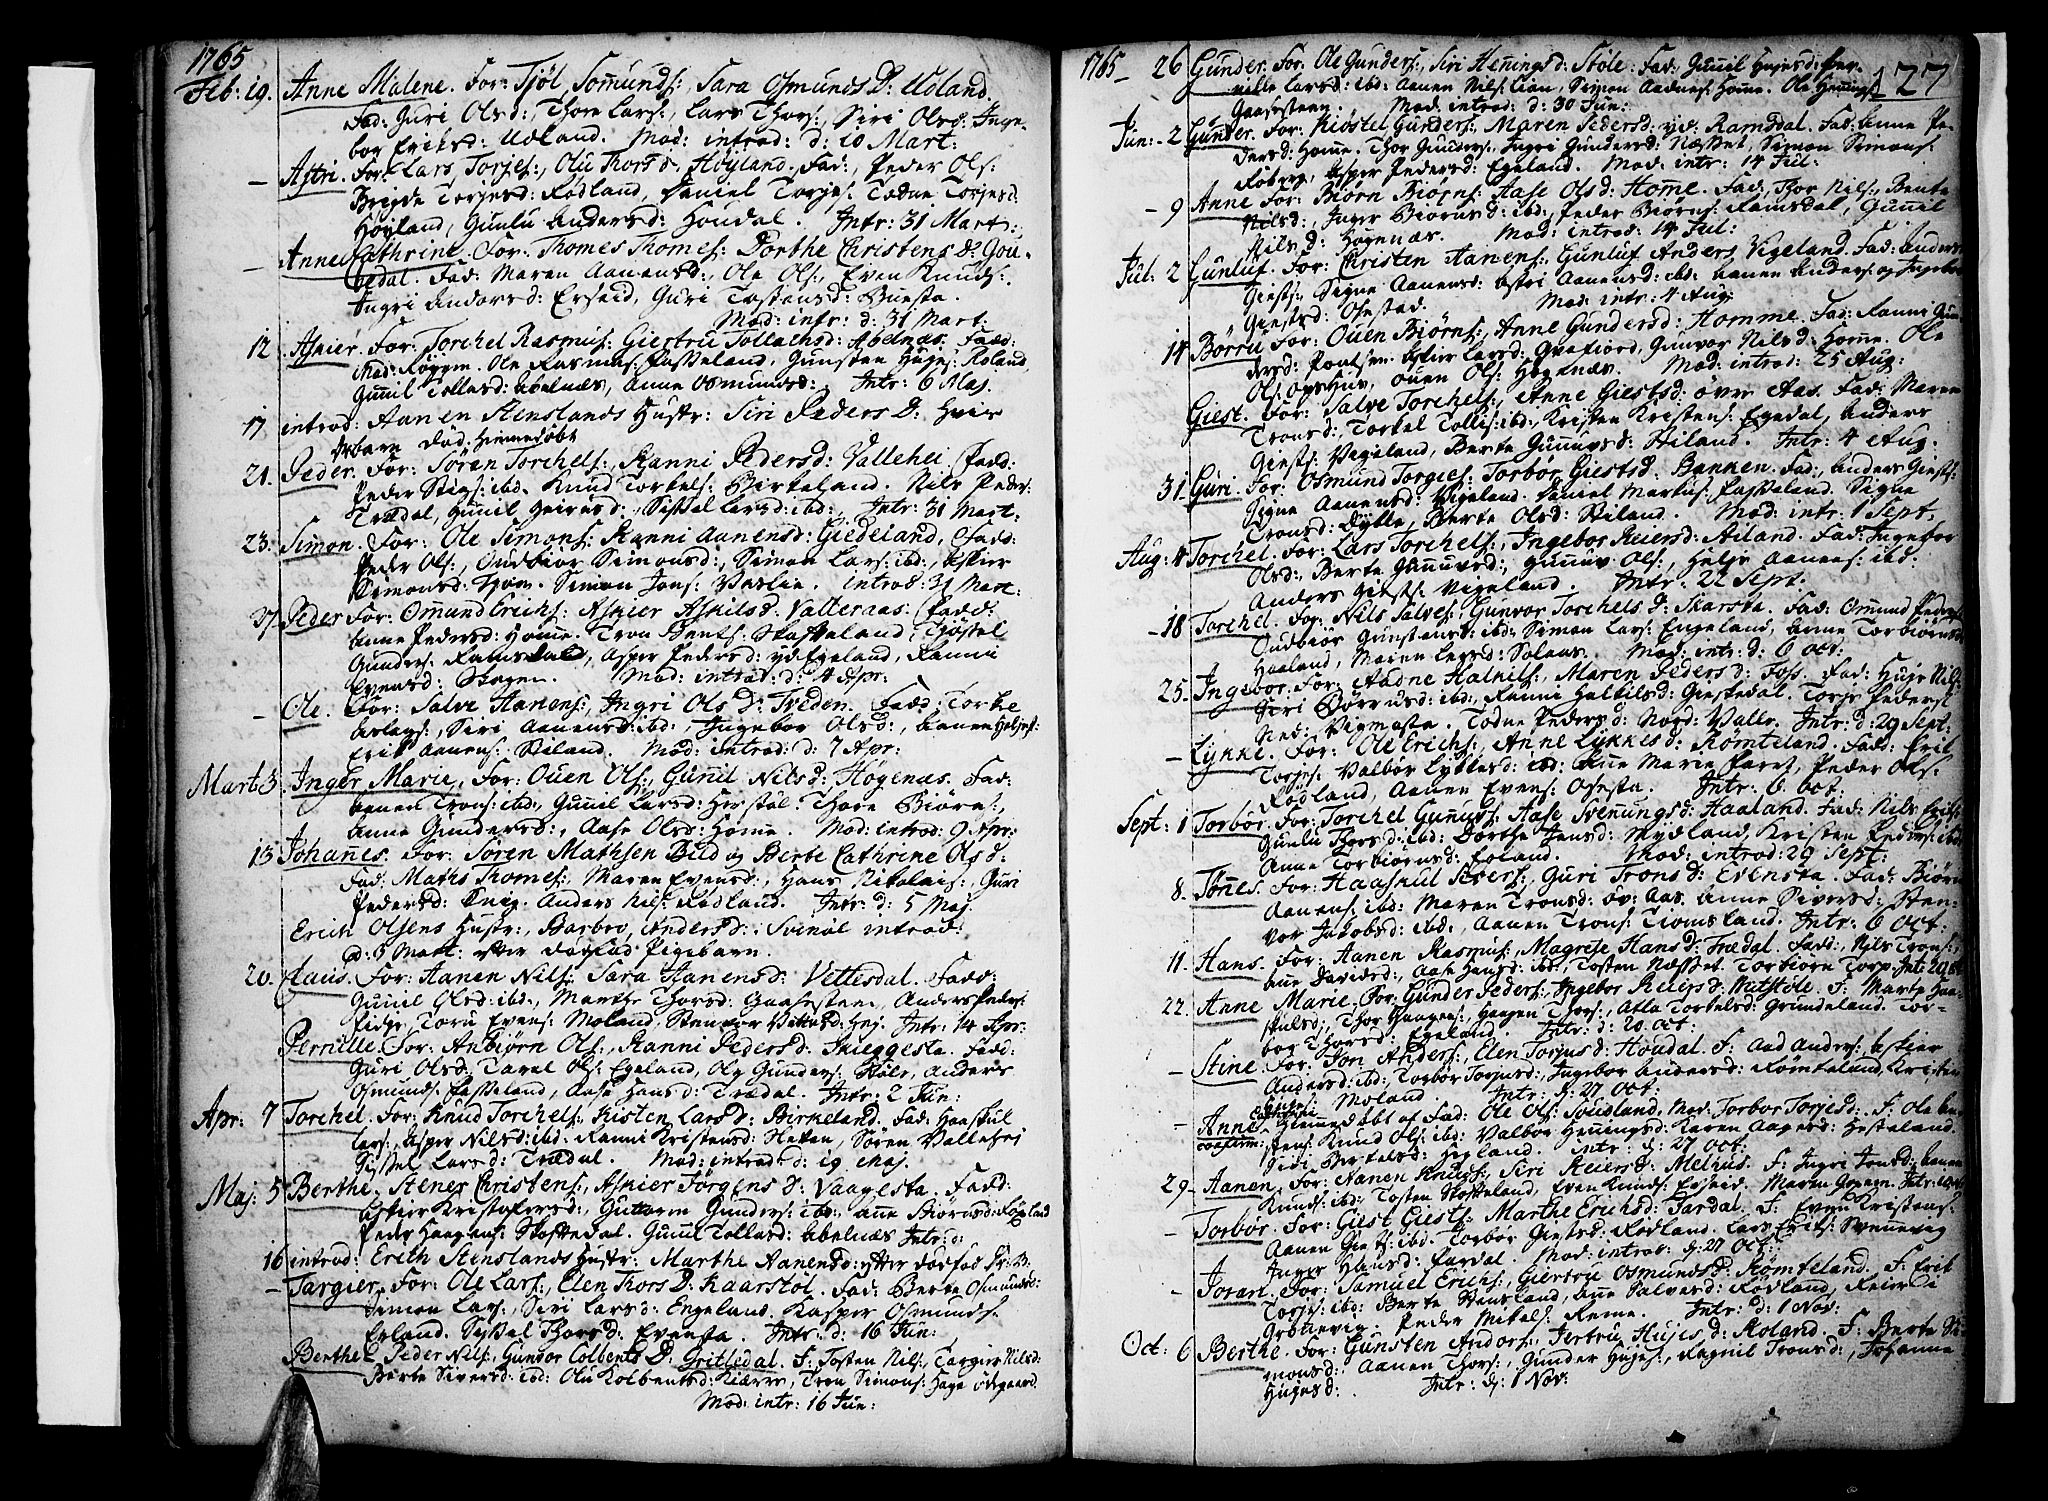 1765
Feb: 19. Anne Malene. For: Tjøl, Somunds: Sara Osmunds D: Udland.
Fad: Guri Olsd:, Thore Lars:, Lars Thors:, Siri Olsd: Inge-
bor Eriksd: Udland. Mod: introd: d: 10 Mart:
- Astri. For: Lars Torjes:, Olu Thorsd: Høyland, Fad:, Peder Ols:
Brigde Torjesd: Rødland, Daniel Torjes: Todne Torjesd:
Høyland, Gunlu Andersd: Houdal. Intr: 31 Mart:
- Anne Cathrine. For: Thomes Thomes: Dorthe Christens D: Gou-
dedal. Fad: Maren Aanensd:, Ole Ols:, Even Knuds:
Ingri Andersd: Erseid, Guri Tostensd: Buesta.
Mod: intr: d: 31 Mart.
12 Asgier. For: Torchel Rasmus: Giertru Tollachsd: Abelnæs. Fadd:
Ole Rasmus: Fasseland, Gunsten Hujes: Roland,
Gunil Tollesd: Abelnæs, Anne Osmundsd: Intr: 6 Maj.
17 introd: Aanen Stenslands Hustr: Siri Peders D:
barn død: Hiemmedøbt
21. Peder. For: Søren Torchels:, Ranni Pedersd: Vallehei. Fadd:
Peder Stigs: ibd. Knud Torkels: Birkeland. Nils Peders:
Trædal, Gunil Geirusd:, Sissel Larsd: ibd:, Intr: 31 Mart:
23. Simon. For: Ole Simons: Ranni Aanensd: Giedeland, Fadd:
Peder Ols:, Oudbiør Simonsd:, Simon Lars: ibd:, Askier
Simonsd: Simon Jons: Vaslie. introd: 31 Mart:
27. Peder For: Omund Erichs: Askier Askilsd: Valleraas. Fadd:
Anne Pedersd: Home. Tron Bents: Skasseland, Kjøstel
Gunders: Ramsdal, Asper Pedersd: yd Egeland, Ranni
Evensd: Skogen. Mod: introd: d: 4 Apr:
- Ole. For: Salve Hanens:, Ingri Ols D: Treden. Fadd: Torke
Aslags:, Siri Aanensd: ibd:, Ingebor Olsd:, Aanen Heljes:
Erik Aanens: Stiland. Mod: introd: d: 7 Apr:
Mart: 3. Inger Marie, For: Ouen Ols:, Gunil Nilsd: Høgenæs. Fad:
Aanen Trons: ibd:, Gunil Larsd: Herstøl. Thore Biørns:,
Anne Gundersd:, Aase Olsd: Home. Mod: introd: 9 Apr:
13 Johanes. For: Søren Mathsen Bud og Berte Cathrine Olsd:
Fad: Maths Thomes:, Maren Evensd:, Hans Nikolais:, Guri
Pedersd: Eneg. Anders Nils: Rødland. Intr: d: 5 Maj.
Erich Olsens Hustr:, Barbro Andersd: Svinøl introd:
d: 3 Mart: efter dødfød Pigebarn.
20. Claus. For: Aanen Nils: Sara Hanensd: Vettesdal. Fadd:
Gunil Olsd: ibd:, Marthe Thorsd: Gaasesteen, Anders Peders:
Toru Evens: Moland, Stenvor Intr: 14 Apr:
Pernille. For: Anbiørn Ols:, Ranni Pedersd: Skieggesta. Fadd:
Guri Olsd: Tarel Ols: Egeland, Ole Gunders: Støle, Anders
Osmunds: Fasseland, Aase Hansd: Trædal. Intr: 2 Jun:
Apr: 7 Torchel. For: Knud Torchels:, Kisten Larsd: Birkeland. Fad: Haaskul
Lars:, Asper Nilsd: ibd: Ranni Kristensd: Hetten, Søren Vallehei
Sissel Larsd: Trædal. Mod: introd: d: 19 Maj.
Maj: 5 Berthe. Stener Christens:, Askier Jørgens D: Vaagesta. Fadd:
Askier Kristofersd:, Guttorm Gunders: ibd:, Ane Biørnsd: Røyland
Peder Haagens: Skoftedal. Gunil Tollsd: Abelnæs Intr: d:
16 introd: Erich Stenslands Hustr: Marthe Aanensd: efter dødfød P: B:
- Targier. For: Ole Lars:, Elen Thors D: Kaarstøl. Fad: Berte Osmundsd:
Simon Lars:, Siri Larsd: Engeland, Kasper Osmunds:
Erland. Syssel Thorsd: Evensta. Intr: d: 16 Jun:
Berthe Peder Nils:, Gunvor Colbents D: Gritledal. F: Tosten Nils:, Targier Nilsd:
Berte Siversd: ibd: Olu Kolbentsd: Kiærre, Tron Simons: Hage ødegaard.
Mod: intr: 16 Jun:
1765 - 26 Gunder. For: Ole Gunders:, Siri Heningsd: Støle. Fad: Gunil Hujesd: Per- 127
nille Larsd: ibd: Aanen Nils: Lian, Simon Aadnes: Home. Ole Henings:
Gaasesteen. Mod: introd: d: 30 Jun:
Jun: - 2 Gunder. For: Kiøstel Gunders:, Maren Pedersd: yd: Ramsdal. Fad: Anne Pe-
dersd: Home. Thor Gunders:, Ingri Gundersd: Næsset, Simon Simons:
Røberg, Asper Pedersd: Egeland. Mod: intr: 14 Jul:
- 9 Anne For: Biørn Biørns: Aase Olsd: Home. Fad: Thor Nils:, Bente
Nilsd:, Inger Biørnsd: ibd:, Peder Biørns: Ramsdal, Gunil
Nilsd: Høgenæs. Mod: introd: 14 Jul:
Jul: 2 Gunluf. For: Christen Aanens: Gunluf Anders. Vigeland. Fad: Anders
Giests: Signe Aanensd: Astri Aanensd: ibd: Aanen Anders: og Ingebor
Giestsd: Ofestad. Mod: intr: 4 Aug:
14 Børru For: Ouen Biørns:, Anne Gundersd: Homme. Fad: Ranni Gun-
dersd: Askier Larsd: Gunvor Nilsd: Home. Ole
Ols: Ouen Ols: Høgenæs. Mod: introd: 25 Aug:
Giest. For: Salve Torchels:, Anne Giestsd: over Aas. Fad: Maren
Tronsd:, Torkel Tollis: ibd:, Kristen Kristens: Egedal, Anders
Giests: Vigeland, Berte Gunnusd: Stiland. Intr: 4 Aug.
31 Guri. For: Osmund Torgies: Torbør Giestsd: Banken. Fad:, Anders Giests:
Signe Aanensd: Vigeland. Daniel Markus: Fasseland. Signe
Tronsd: Dylle, Berte Olsd: Stiland. Mod: intr: 1 Sept:
Aug: 4 Torchel. For: Lars Torchels:, Ingebor Reiersd: Ailand. Fad: Ingebor
Olsd:, Berte Gunnusd:, Gunnuv Ols:, Helje Aanens: ibd:
Anders Giests: Vigeland. Intr: 22 Sept.
- 18 Torchel. For: Nils Salves: Gunvor Torchels D: Skarsta. Fad: Omund Peders:
Oudbiør Gunstensd: ibd: Simon Lars: Engeland, Anne Torbiørnsd:
Haaland, Maren Larsd: Solaas. Mod: intr: d: 6 Oct:
25. Ingebor. For: Aadne Halkels:, Maren Pedersd: Foss. Fad: Huje Nils:
Siri Børrusd: ibd: Ranni Halkilsd: Giestedal. Torje Peders:
Vigmasta. Todne Pedersd: Nord: Valle. Intr: d: 29 Sept:
- Lykke. For: Ole Erichs:, Anne Lykkesd: Rømteland. Fadd: Erik
Torjes: Valbør Lykkesd: ibd: Ane Marie Peder Ols:
Rødland, Aanen Evens: Ofesta. Intr: 6 Oct:
Sept: 1 Torbør. For: Torchel Gunnus: Aase Svenungsd: Haaland. Fad: Nils Eriks:
Gunlu Thorsd: ibd: Dorthe Jensd: Mydland, Kristen Peders: ibd:
Anne Torbiørnsd: Foland. Mod: introd: 29 Sept:
8. Tønes. For: Haaskul Sivers:, Guri Trons D: Evensta. Fad: Biørn
Aanens: ibd: Maren Tronsd: øv: Aas. Anne Siversd:, Sten-
vor Jakobsd: ibd:, Aanen Trons: Tromsland. Intr: 6 Oct:
11. Hans. For: Aanen Rasmus:, Magrete Hans D: Trædal. Fadd:, Nils Trons:,
Ane Davidsd:, Aase Hansd: ibd:, Tosten Næsset. Torbiørn Torp. Int: 20 Oct
22. Anne Marie. For: Gunder Peders:, Ingebor Reiersd: Mitstøle. F: Marte Haa-
skulsd:, Thor Haagens:, Haagen Thors:, Atla Torkelsd: Grundeland. Tor-
bør Thorsd: Egeland. Intr: d: 20 Oct:
- Stine. For: Jon Anders:, Elen Torjusd: Houdal. F: Aad Anders: Askier
Andersd: ibd:, Torbør Torjusd:, Ingebor Andersd: Rømteland, Kristen
Moland. Intr: d: 27 Oct:
- Anne Hiemmedøbt af Fad: Ole Ols: Soudland, Mod: Torbor Torjesd: F: Ole An-
Knud Ols: ibd: Valbør Heningsd: Karen Aagesd: Hesteland.
Siri Bertelsd: Høgland. intr: d: 27 Oct:
29 - Aanen. For: Aanen Knuds: Siri Reiersd: Melhus. F: Ingri Jonsd: Aanen
Knuds: ibd: Tosten Skosseland, Even Knuds: Erseid. Maren
- Torbør. For: Giest Giests: Marthe Erichsd: Fardal. F: Even Kristens:
Aanen Giests: ibd: Torbør Giestsd: Rødland. Lars Eriks: Svennevig
Inger Hansd: Fardal. Mod: introd: d: 27 Oct:
- Joran. For: Samuel Erichs:, Giertru Osmundsd: Rømteland. F: Erik
Torjes: ibd: Berte Stensland, Ane Salvesd: Rødland, Reier
Grønevig. Peder Mikels: Reme. Intr: d: 1 Nov:
Oct: 6 Berthe. For: Gunsten Anders:, Jertru Hujes D: Roland. F: Berte Si-
monsd:, Aanen Thors:, Gunder Hujes:, Ragnil Tronsd:, Johanne
Hujesd: Intr: d: 1 Nov: